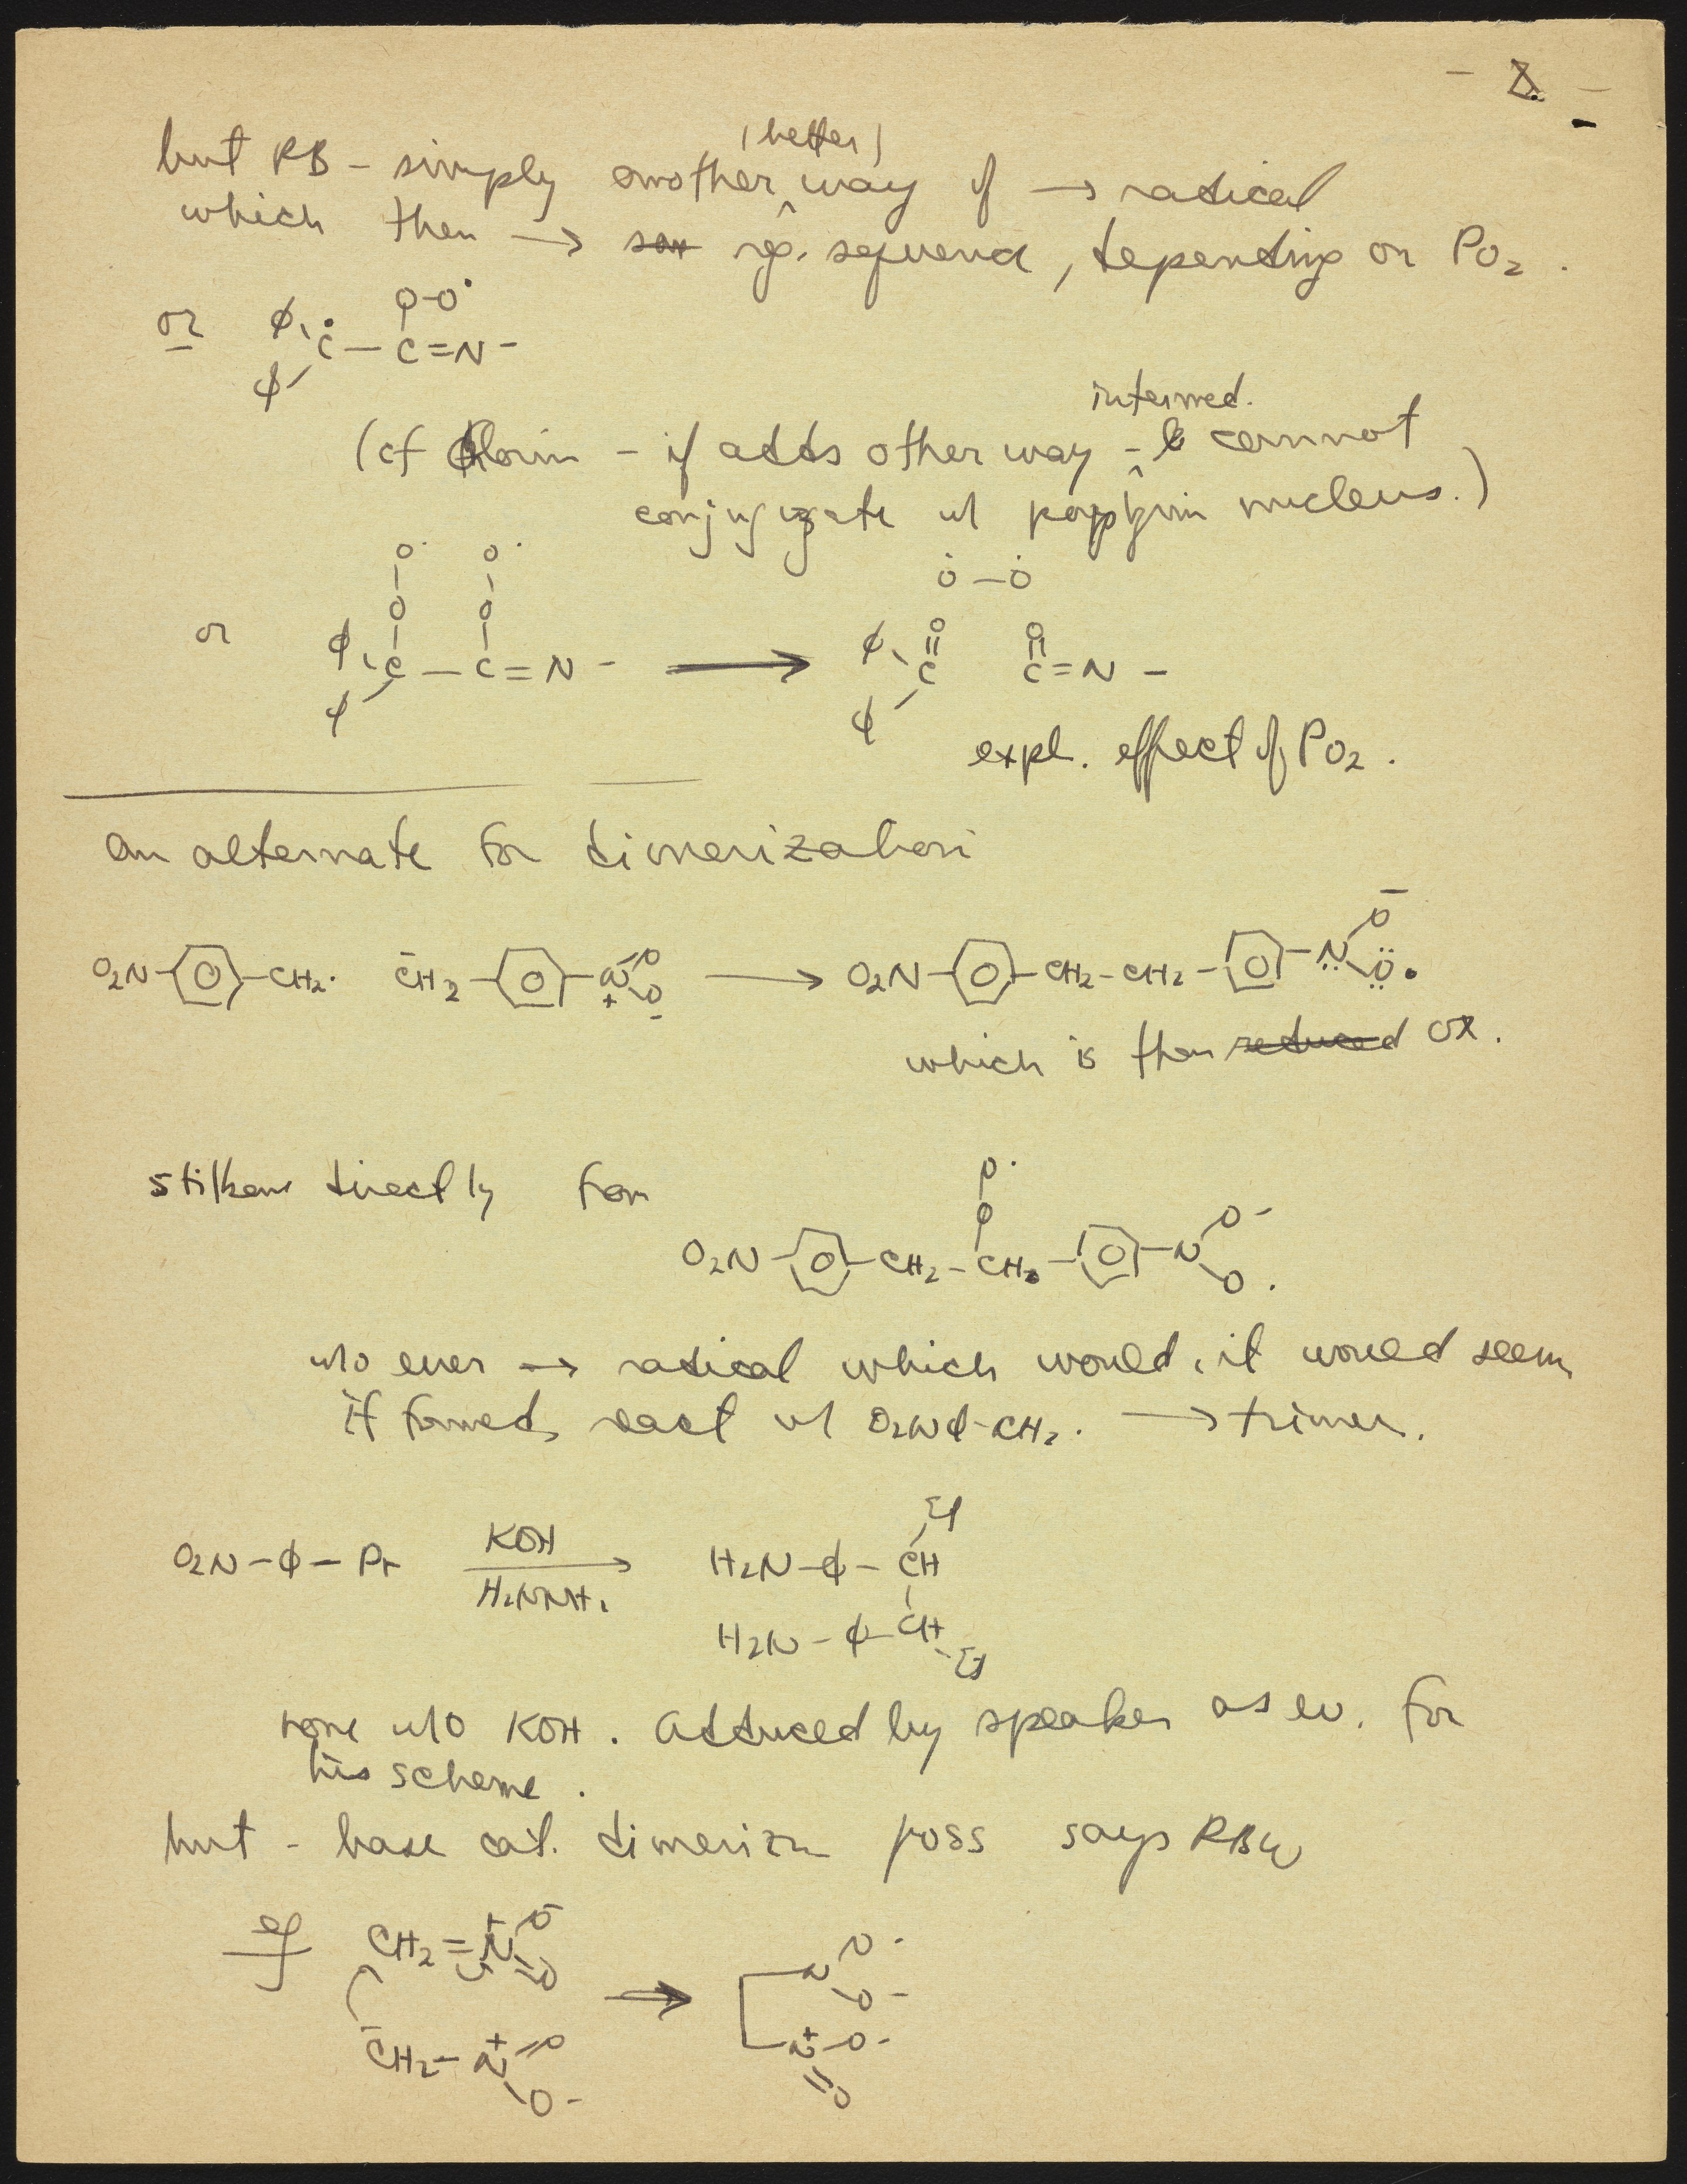 - 8. -
(better)
but RB - simply another way of → radical
which then → rg. sequence, depending on PO2.
or φ φ Ċ - C=N- O-O·
intermed.
(cf Chlorin - if adds other way - cannot
conjugate w/ porphyrin nucleus.)
O· O· Ȯ-Ȯ
O O O O
or φ φ C - C=N- → φ φ C C=N-
expl. effect of PO2.
An alternate for dimerization
O2N- -CH2· C̄H2- -N+ O O- → O2N- -CH2-CH2- -N O- O·
which is then reduced ox.
stilbene directly from
O2N- -CH2-CH2- -N O- O· O O·
w/o ever → radical which would, it would seem,
if formed, react w/ O2Nφ-CH2· → trimer.
O2N-φ-Pr KOH H2NNH2 → H2N-φ-CH Et
H2N-φ-CH Et
none w/o KOH. Adduced by speaker as ev. for
his scheme.
but - base cat. dimerizn poss says RBW
eg CH2=N+ O- O → N O· O-
C̄H2-N+ O O- N+ O- O